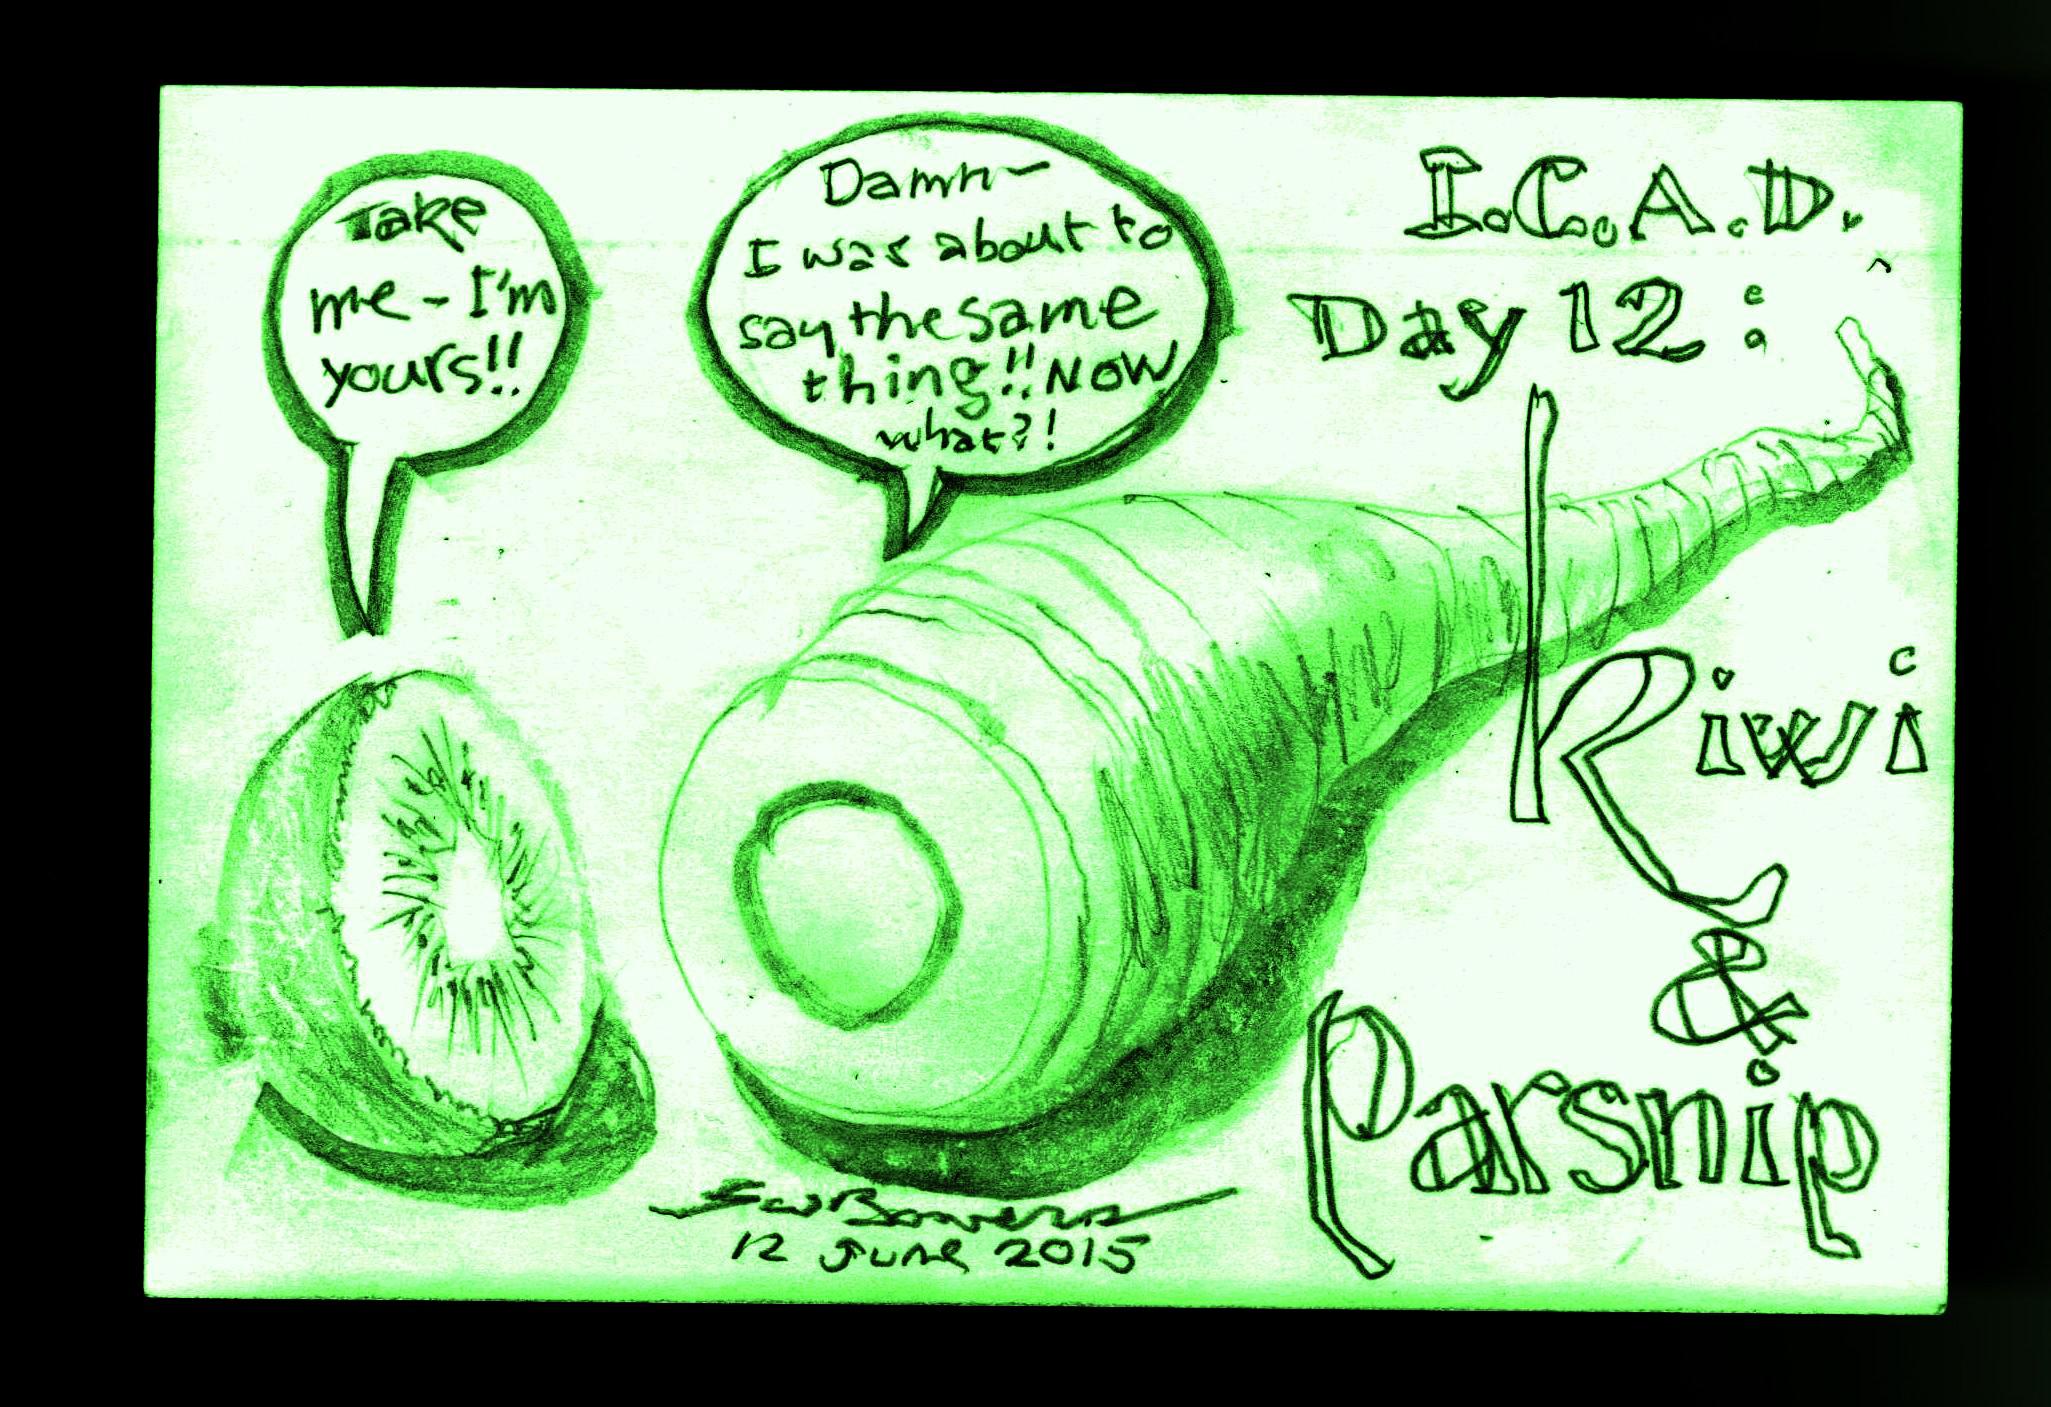 Take
me - I'm
yours!!
Damn -
I was about to
say the same
thing!! Now
what?!
I.C.A.D.
Day 12:
Kiwi
&
Parsnip
12 June 2015